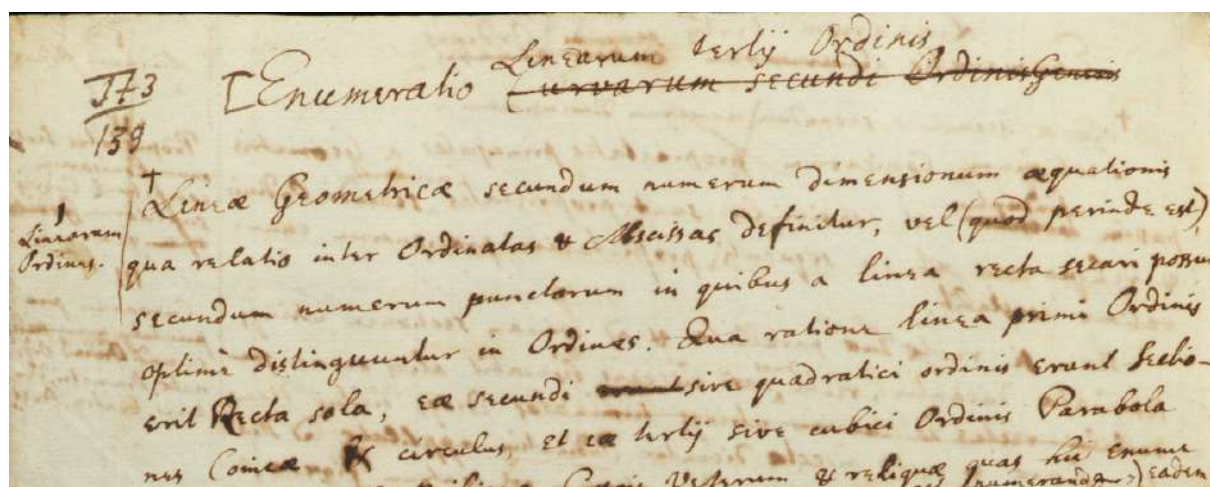 Linearum tertij Ordinis
573
139
[Enumeratio Curvarum secundi Ordinis Generis
† Lineæ Geometricæ secundum numerum dimensionum æquationis
1
Linearum
Ordines.
qua relatio inter Ordinatas & Abscissas definitur, vel (quod perinde est)
secundum numerum punctorum in quibus a linea recta secari possu
optime distinguuntur in Ordines. Qua ratione linea primi Ordinis
erit Recta sola, eæ secundi sive quadratici ordinis erunt Sectio-
nes Conicæ & circulus, et eæ tertij sive cubici Ordinis Parabola
Veterum & reliquæ quas hic enume
numerandas) eadem